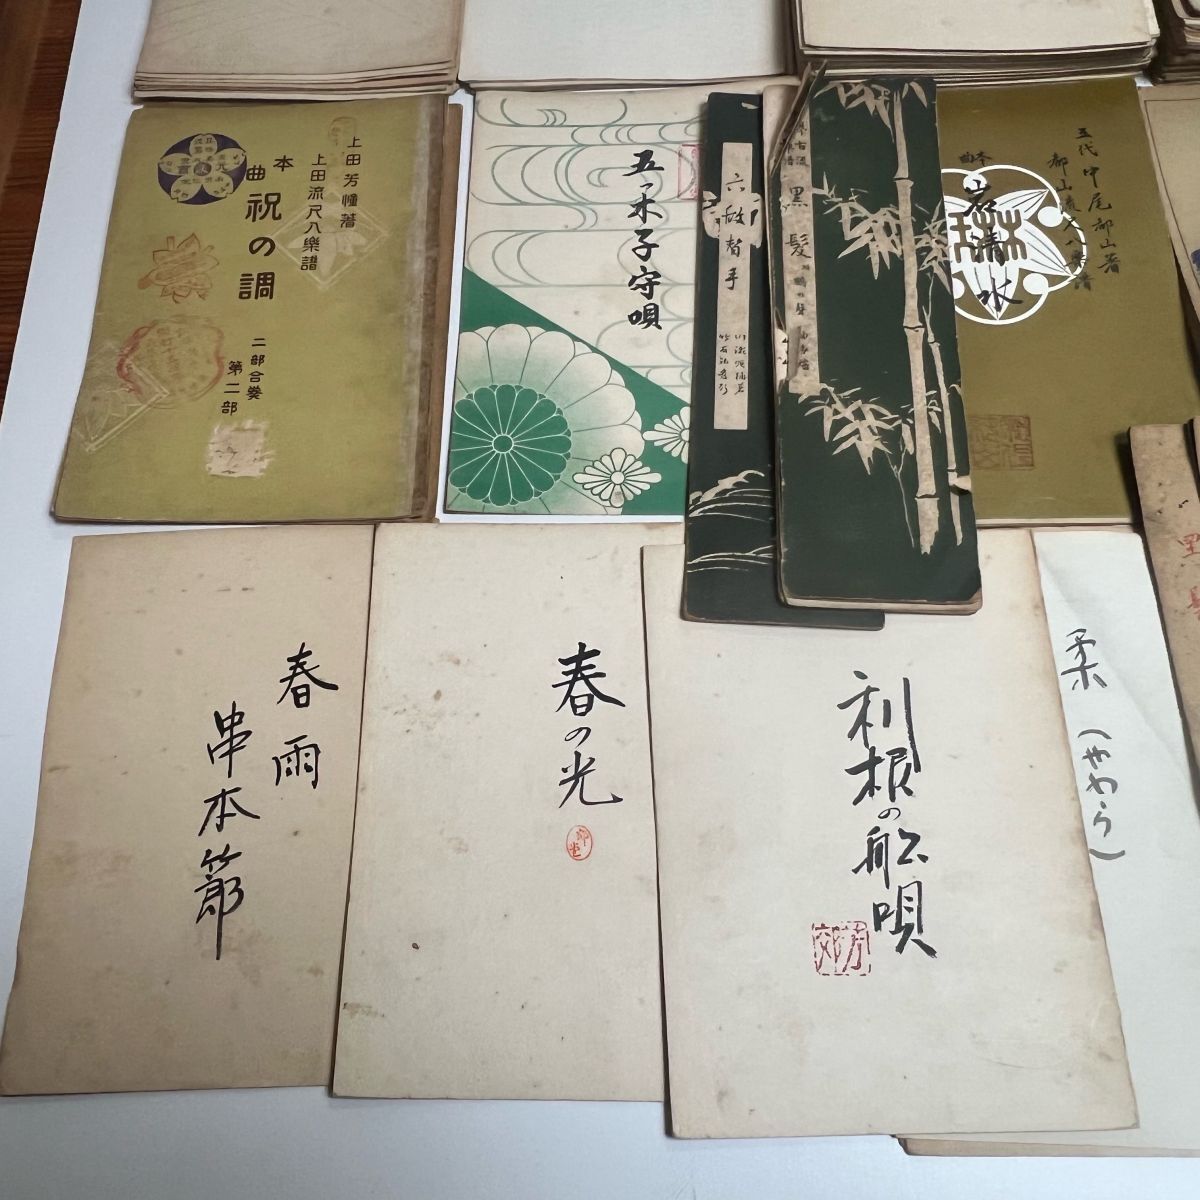 上田芳憧著
上田流尺八樂譜
本曲 祝の調
二部合奏
第二部
五木子守唄
六段替手
黒髪
五代中尾都山著
都山流尺八楽譜
本曲 岩清水
春雨
串本節
春の光
利根の船唄
柔(やわら)